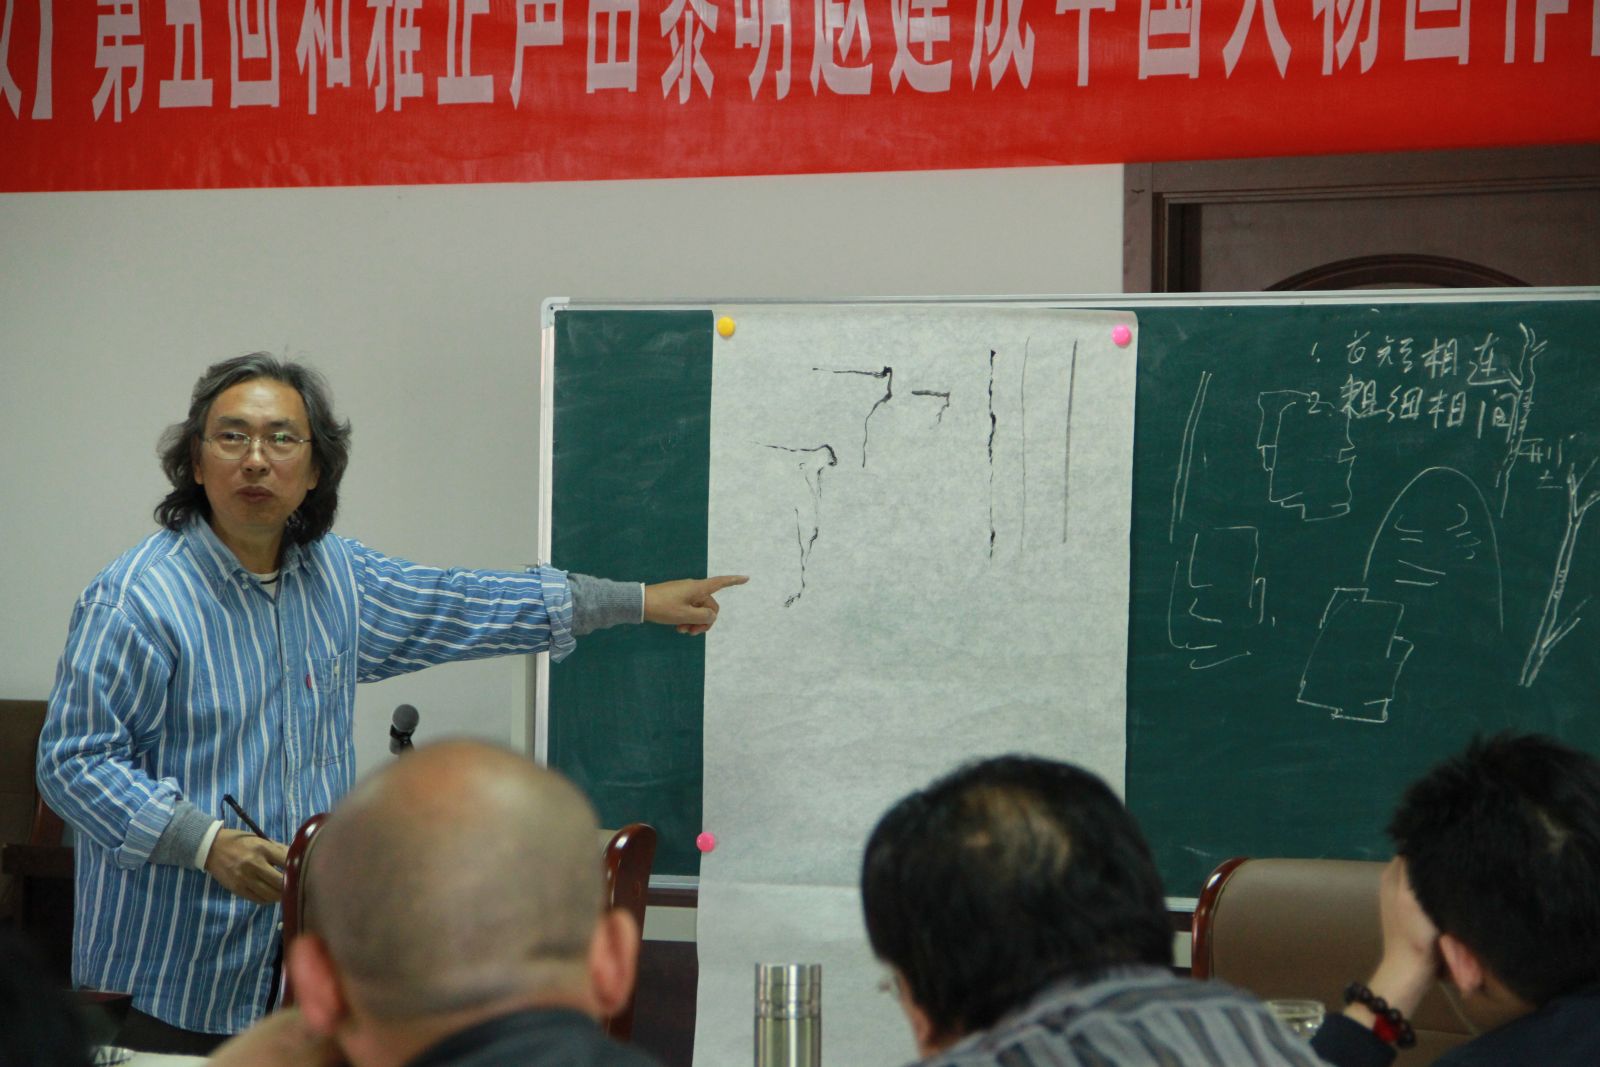 】第五回和雅正声田黎明赵建成中国人物画作
1. 长短相连
2 粗细相间
型